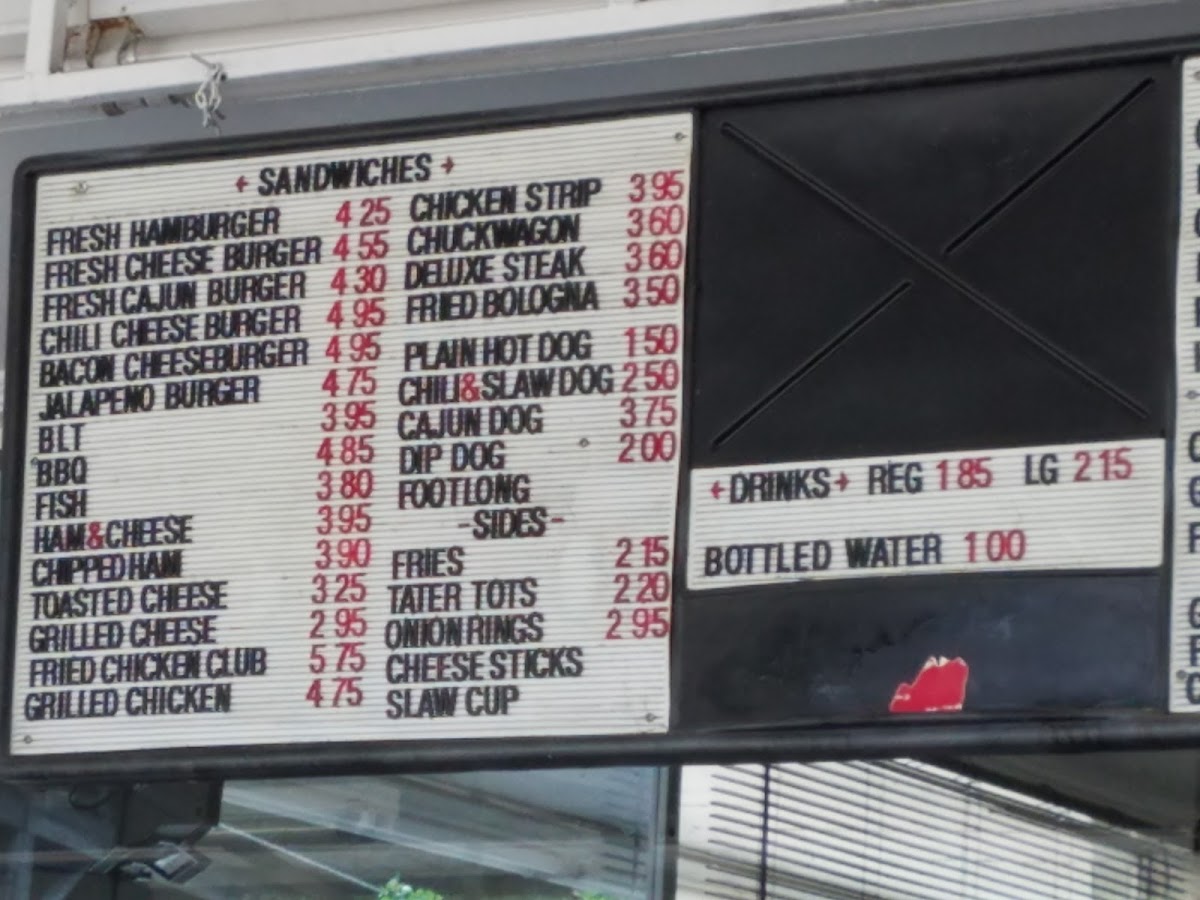 SANDWICHES
FRESH HAMBURGER 4 25
FRESH CHEESE BURGER 4 55
FRESH CAJUN BURGER 4 30
CHILI CHEESE BURGER 4 95
BACON CHEESEBURGER 4 95
JALAPENO BURGER 4 75
BLT 3 95
BBQ 4 85
FISH 3 80
HAM&CHEESE 3 95
CHIPPED HAM 3 90
TOASTED CHEESE 3 25
GRILLED CHEESE 2 95
FRIED CHICKEN CLUB 5 75
GRILLED CHICKEN 4 75
CHICKEN STRIP 3 95
CHUCKWAGON 3 60
DELUXE STEAK 3 60
FRIED BOLOGNA 3 50
PLAIN HOT DOG 1 50
CHILI&SLAW DOG 2 50
CAJUN DOG 3 75
DIP DOG 2 00
FOOTLONG
-SIDES-
FRIES 2 15
TATER TOTS 2 20
ONION RINGS 2 95
CHEESE STICKS
SLAW CUP
DRINKS REG 1 85 LG 2 15
BOTTLED WATER 1 00